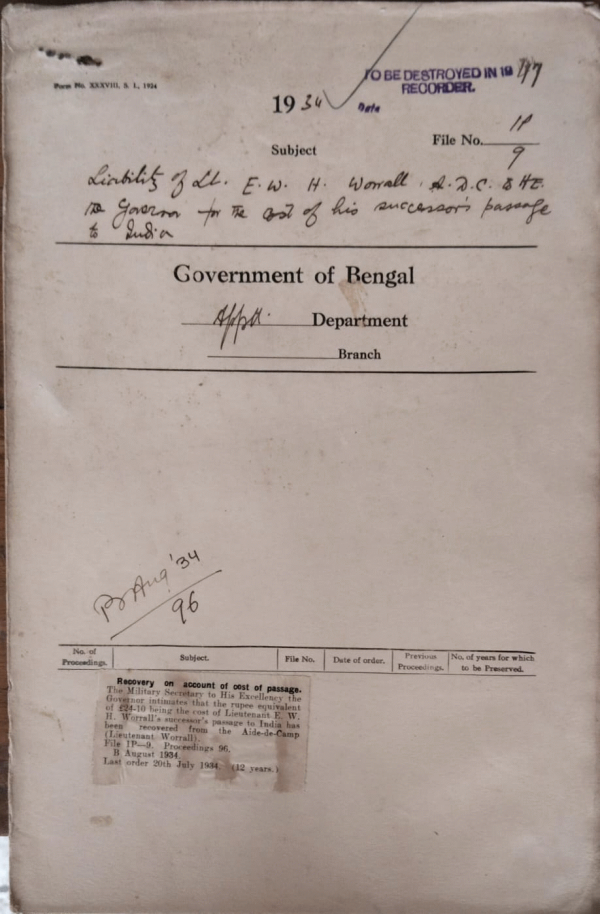 Form No. XXXVIII, S. I., 1924
TO BE DESTROYED IN 1947
RECORDER.
Date
1934
File No. 1P
9
Subject
Liability of Lt. E. W. H. Worrall A.D.C. to HE.
the Governor for the cost of his successor's passage
to India
Government of Bengal
Appt. Department
Branch
B Aug '34
96
No. of Proceedings. Subject. File No. Date of order. Previous Proceedings. No. of years for which to be Preserved.
Recovery on account of cost of passage.
The Military Secretary to His Excellency the
Governor intimates that the rupee equivalent
of £24-10 being the cost of Lieutenant E. W.
H. Worrall's successor's passage to India has
been recovered from the Aide-de-Camp
(Lieutenant Worrall).
File 1P—9. Proceedings 96.
B August 1934.
Last order 20th July 1934. (12 years.)